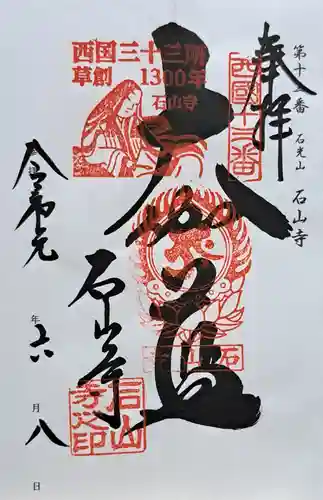 第十三番 石光山 石山寺
奉拝
西国十三番
西国三十三所
草創 1300年
石山寺
大伽藍
石山寺
石山
寺之印
令和元年 六月八日